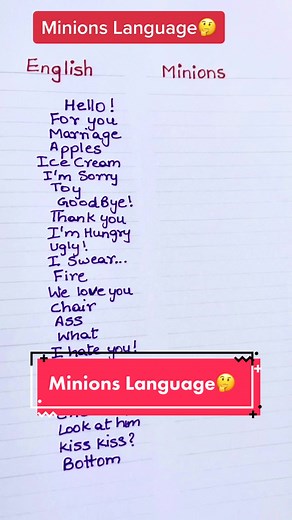 Minions Language🤔
English Minions
Hello!
For you
Marriage
Apples
Ice Cream
I'm Sorry
Toy
GoodBye!
Thank you
I'm Hungry
Ugly!
I Swear...
Fire
We love you
Chair
Ass
What
I hate you!
Minions Language🤔
Look at him
Kiss Kiss?
Bottom